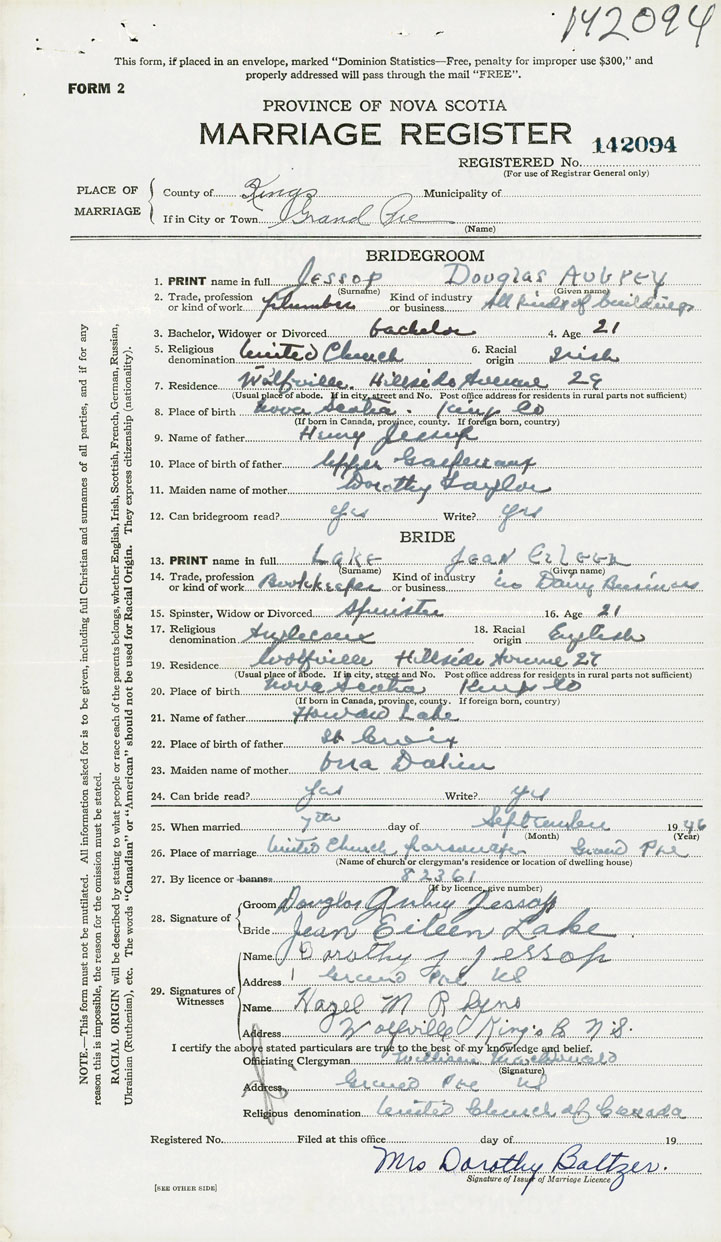 142094
This form, if placed in an envelope, marked "Dominion Statistics—Free, penalty for improper use $300," and
properly addressed will pass through the mail "FREE".
FORM 2
PROVINCE OF NOVA SCOTIA
MARRIAGE REGISTER
142094
REGISTERED No.
(For use of Registrar General only)
PLACE OF MARRIAGE
County of Kings Municipality of
If in City or Town Grand Pre
(Name)
BRIDEGROOM
1. PRINT name in full Jessop Douglas Aubrey
(Surname) (Given name)
2. Trade, profession or kind of work plumber Kind of industry or business All kinds of buildings
3. Bachelor, Widower or Divorced bachelor 4. Age 21
5. Religious denomination United Church 6. Racial origin Irish
7. Residence Wolfville. Hillside Avenue 29
(Usual place of abode. If in city, street and No. Post office address for residents in rural parts not sufficient)
8. Place of birth Nova Scotia. Kings Co
(If born in Canada, province, county. If foreign born, country)
9. Name of father Henry Jessop
10. Place of birth of father Upper Gaspereaux
11. Maiden name of mother Dorothy Taylor
12. Can bridegroom read? Yes Write? Yes
BRIDE
13. PRINT name in full Lake Jean Eileen
(Surname) (Given name)
14. Trade, profession or kind of work Bookkeeper Kind of industry or business Dairy Business
15. Spinster, Widow or Divorced Spinster 16. Age 21
17. Religious denomination 18. Racial origin English
19. Residence Wolfville Hillside Avenue 27
(Usual place of abode. If in city, street and No. Post office address for residents in rural parts not sufficient)
20. Place of birth Nova Scotia Kings Co
(If born in Canada, province, county. If foreign born, country)
21. Name of father Howard Lake
22. Place of birth of father St Croix
23. Maiden name of mother
24. Can bride read? Yes Write? yes
25. When married 7th day of September 1946
(Month) (Year)
26. Place of marriage United Church Parsonage Grand Pre
(Name of church or clergyman's residence or location of dwelling house)
27. By licence or banns 82361
(If by licence, give number)
28. Signature of
Groom Douglas Aubrey Jessop
Bride Jean Eileen Lake
29. Signatures of Witnesses
Name Dorothy J Jessop
Address Grand Pre NS
Name Hazel M Rhyno
Address Wolfville King's Co N.S.
I certify the above stated particulars are true to the best of my knowledge and belief.
Officiating Clergyman William
(Signature)
Address Grand Pre NS
Religious denomination United Church of Canada
Registered No. Filed at this office day of 19
Mrs Dorothy Baltzer.
Signature of Issuer of Marriage Licence
[SEE OTHER SIDE]
NOTE.—This form must not be mutilated. All information asked for is to be given, including full Christian and surnames of all parties, and if for any
reason this is impossible, the reason for the omission must be stated.
RACIAL ORIGIN will be described by stating to what people or race each of the parents belongs, whether English, Irish, Scottish, French, German, Russian,
Ukrainian (Ruthenian), etc. The words "Canadian" or "American" should not be used for Racial Origin. They express citizenship (nationality).